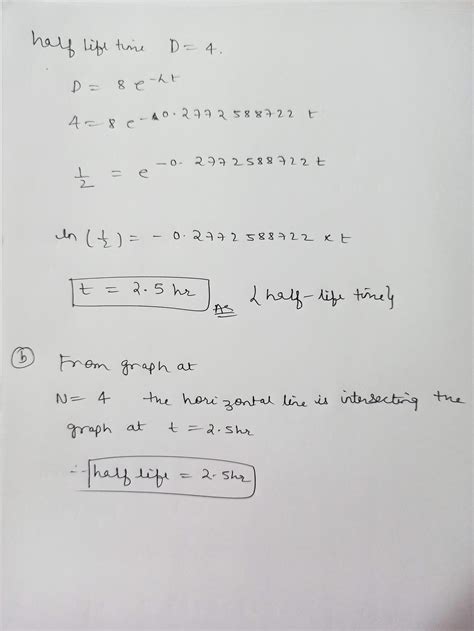 half life time D = 4.
D = 8 e^-λt
4 = 8 e^-0.2772588722 t
1/2 = e^-0.2772588722 t
ln (1/2) = - 0.2772588722 x t
t = 2.5 hr Ans {half-life time}
(b) From graph at
N = 4 the horizontal line is intersecting the
graph at t = 2.5hr
∴ half life = 2.5hr